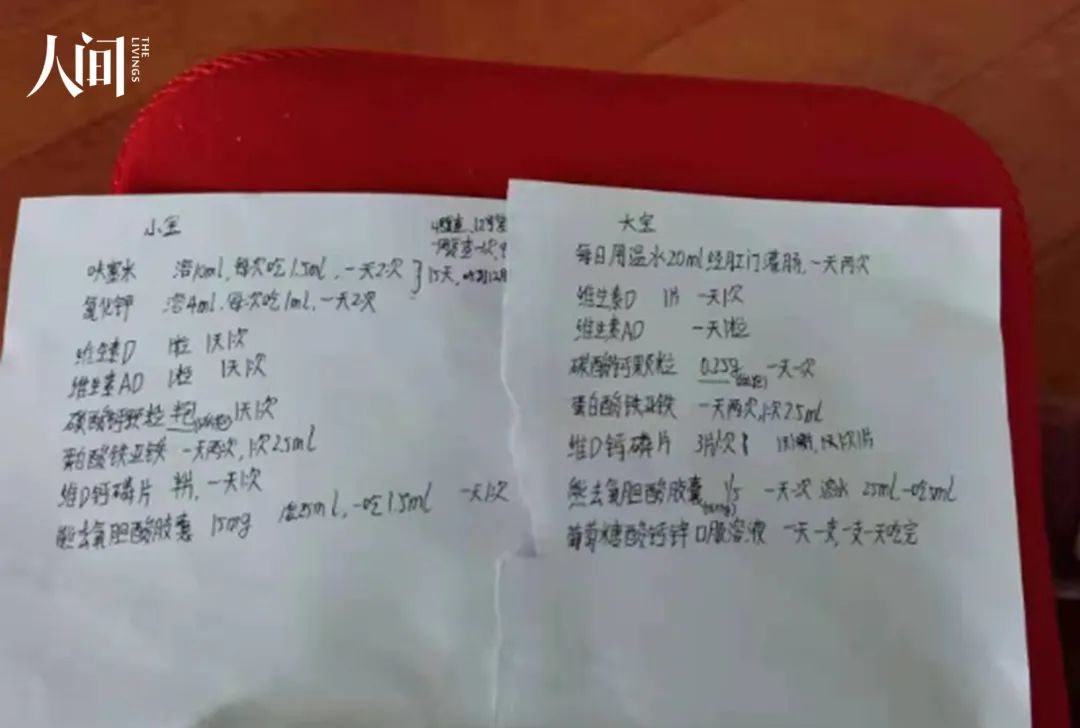 人间
THE LIVINGS
小宝
呋塞米 溶10ml,每次吃1.5ml,一天2次
15天,
氯化钾 溶4ml,每次吃1ml,一天2次
维生素D 1粒 1天1次
维生素AD 1粒 1天1次
碳酸钙颗粒 半包 1天1次
蛋白酸铁亚铁 一天两次,1次2.5ml
维D钙磷片 半片,一天1次
熊去氧胆酸胶囊 15mg 溶25ml,一吃1.5ml 一天1次
大宝
每日用温水20ml经肛门灌肠,一天两次
维生素D 1片 一天1次
维生素AD 一天1粒
碳酸钙颗粒 0.25g 一天一次
蛋白酸铁亚铁 一天两次,1次2.5ml
维D钙磷片 3片/次
熊去氧胆酸胶囊 1/5 (50mg) 一天一次 溶水 25ml一吃5ml
葡萄糖酸钙锌口服溶液 一天一支,一支一天吃完